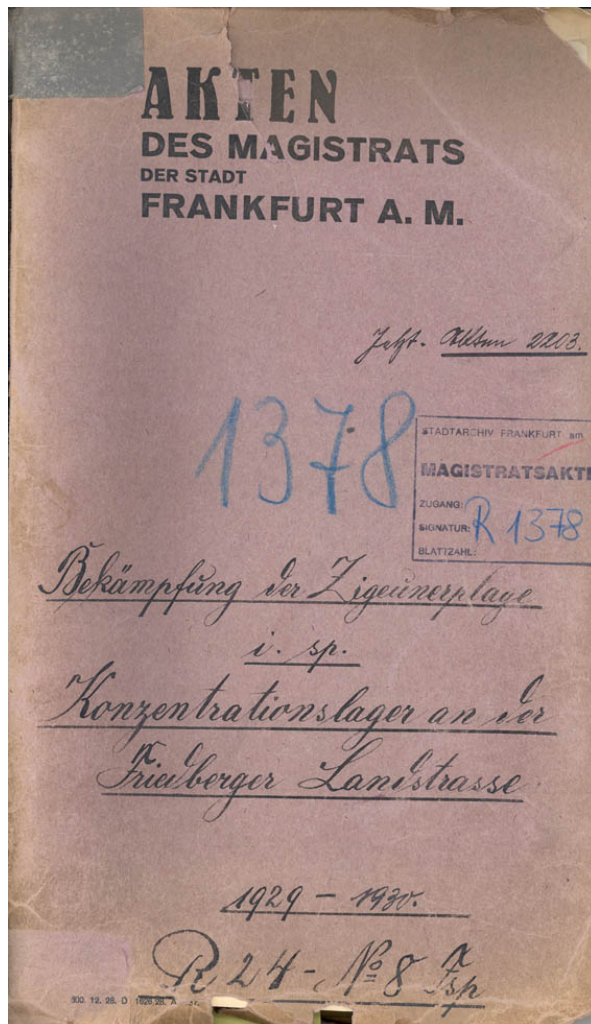 AKTEN
DES MAGISTRATS
DER STADT
FRANKFURT A. M.
Jetzt. Akten 2203.
1378
STADTARCHIV FRANKFURT am
MAGISTRATSAKTE
ZUGANG:
SIGNATUR: R 1378
BLATTZAHL:
Bekämpfung der Zigeunerplage
i. sp.
Konzentrationslager an der
Friedberger Landstrasse
1929 – 1930.
R 24 - No 8
300. 12. 28. D